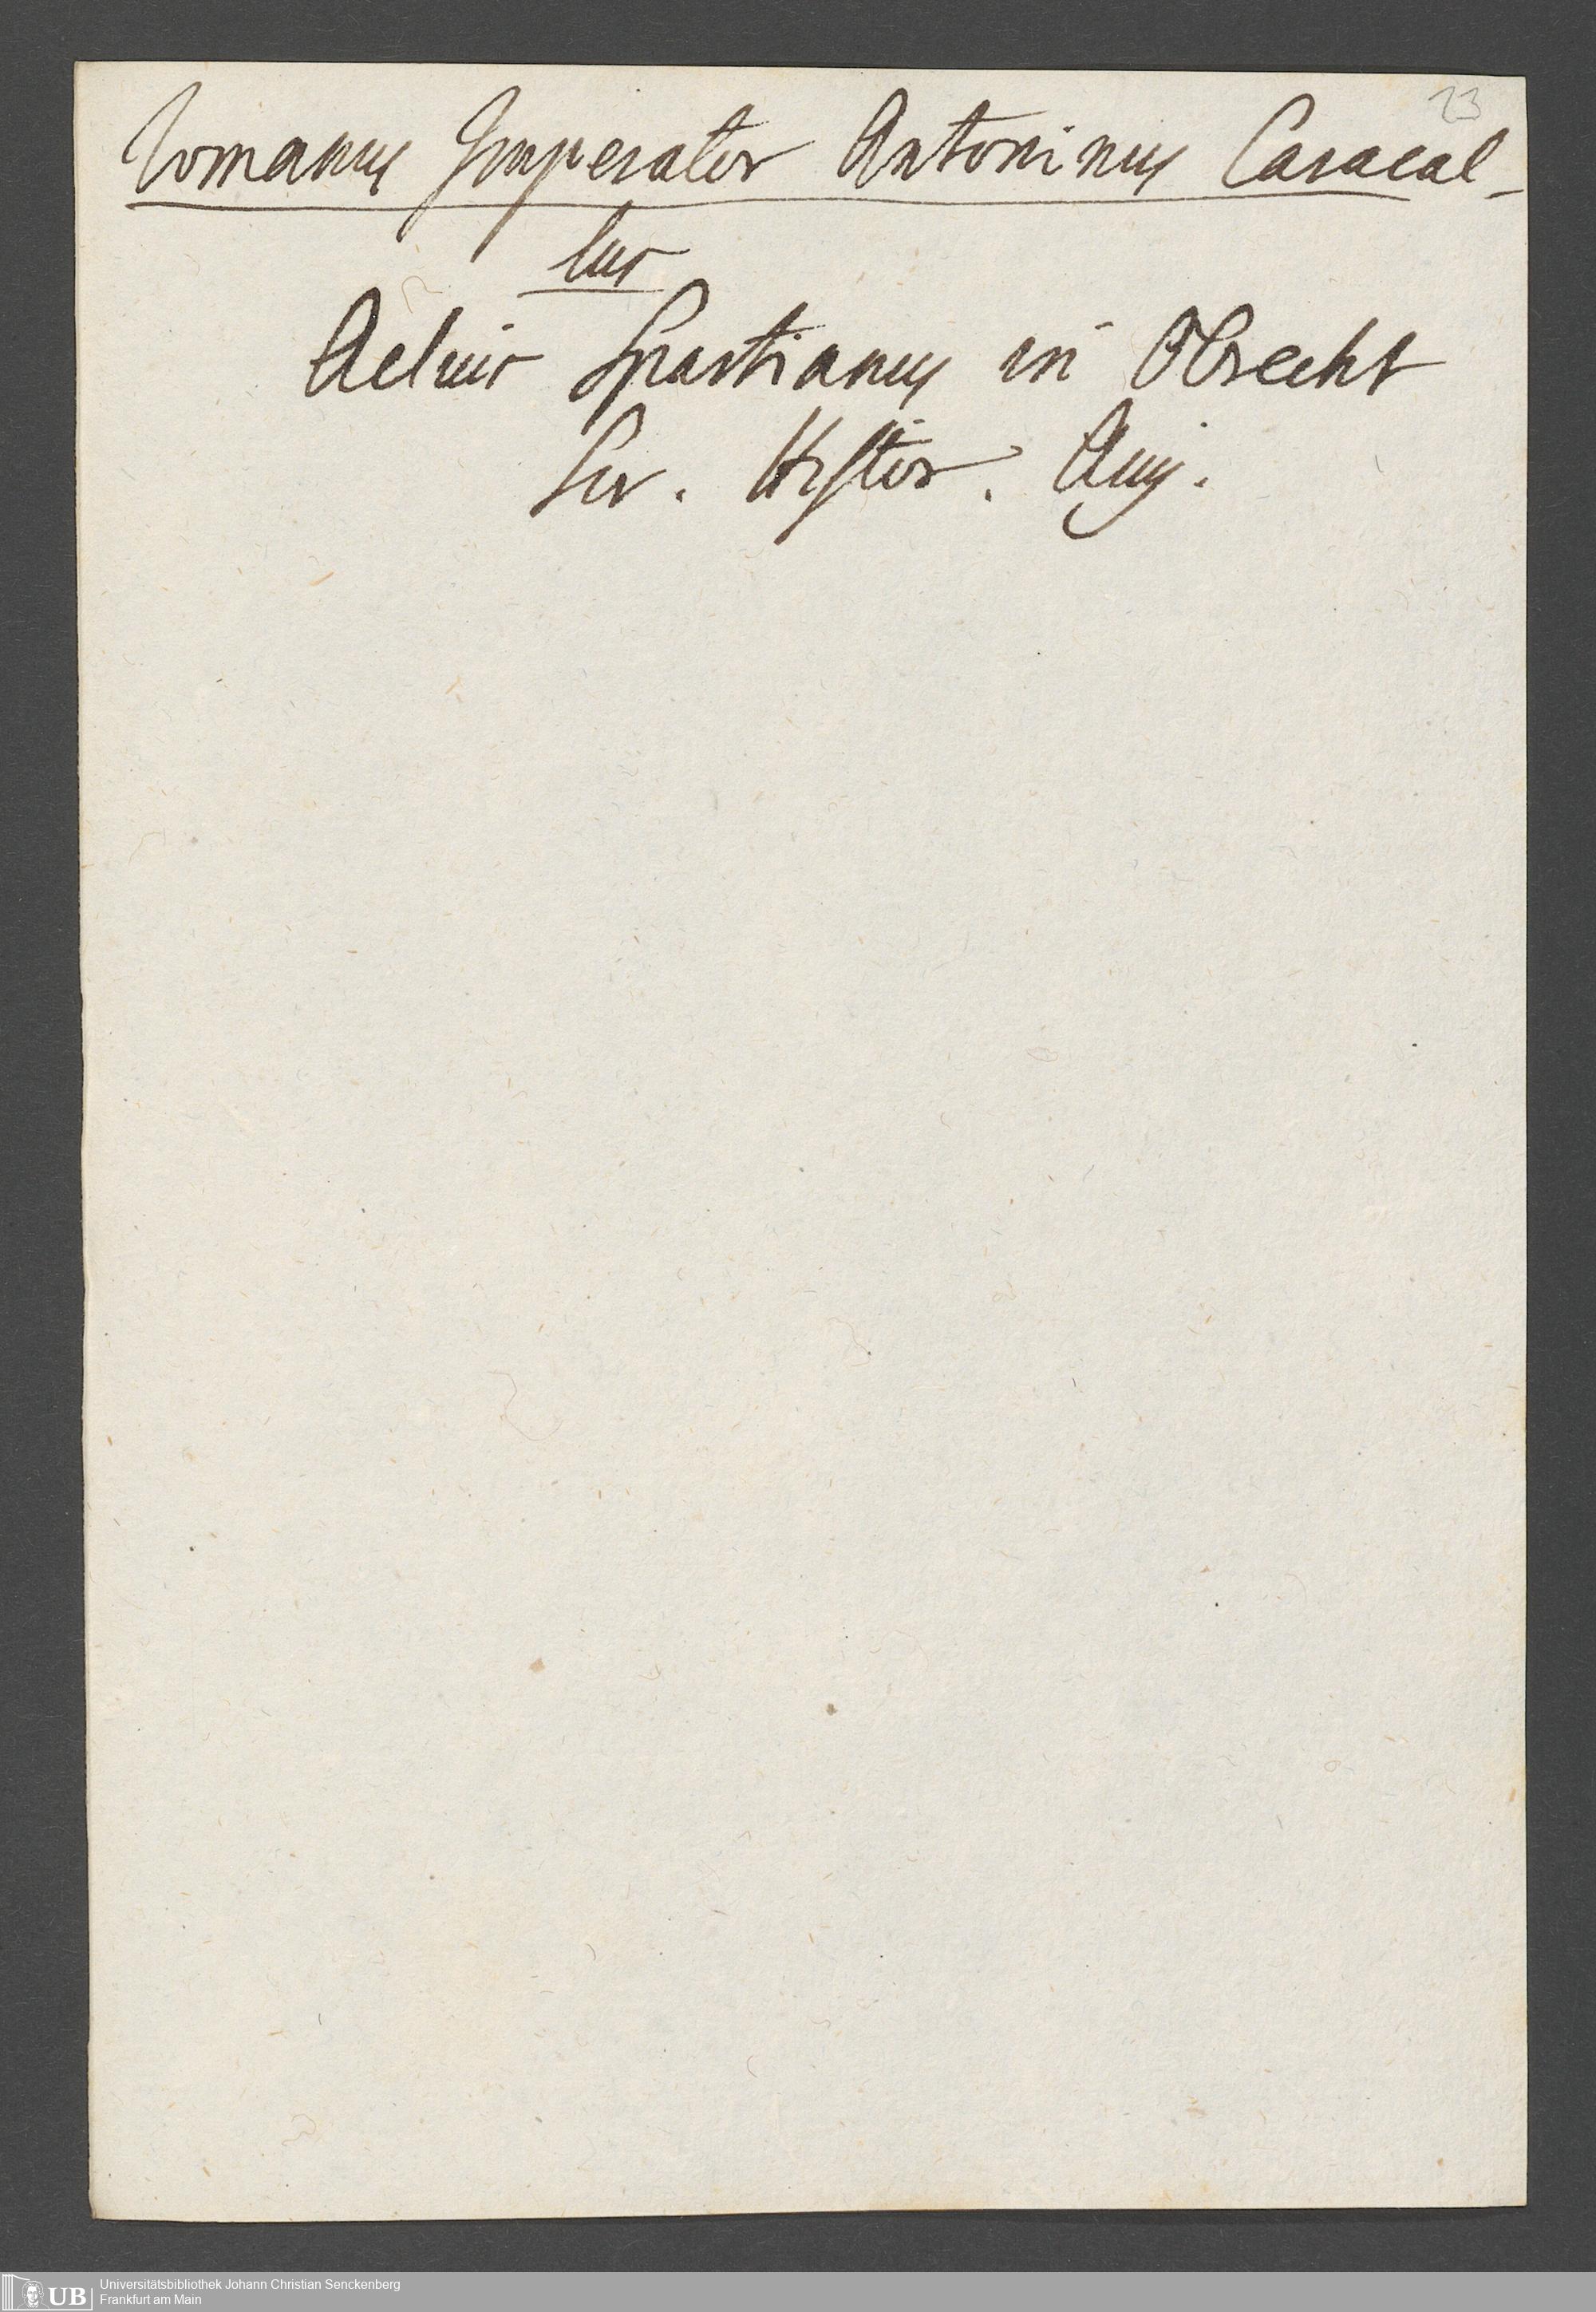 23
Romanus Imperator Antoninus Caracal-
lus
Aelius Spartianus in Obrecht
Scr. Histor. Aug.
UB
Universitätsbibliothek Johann Christian Senckenberg
Frankfurt am Main